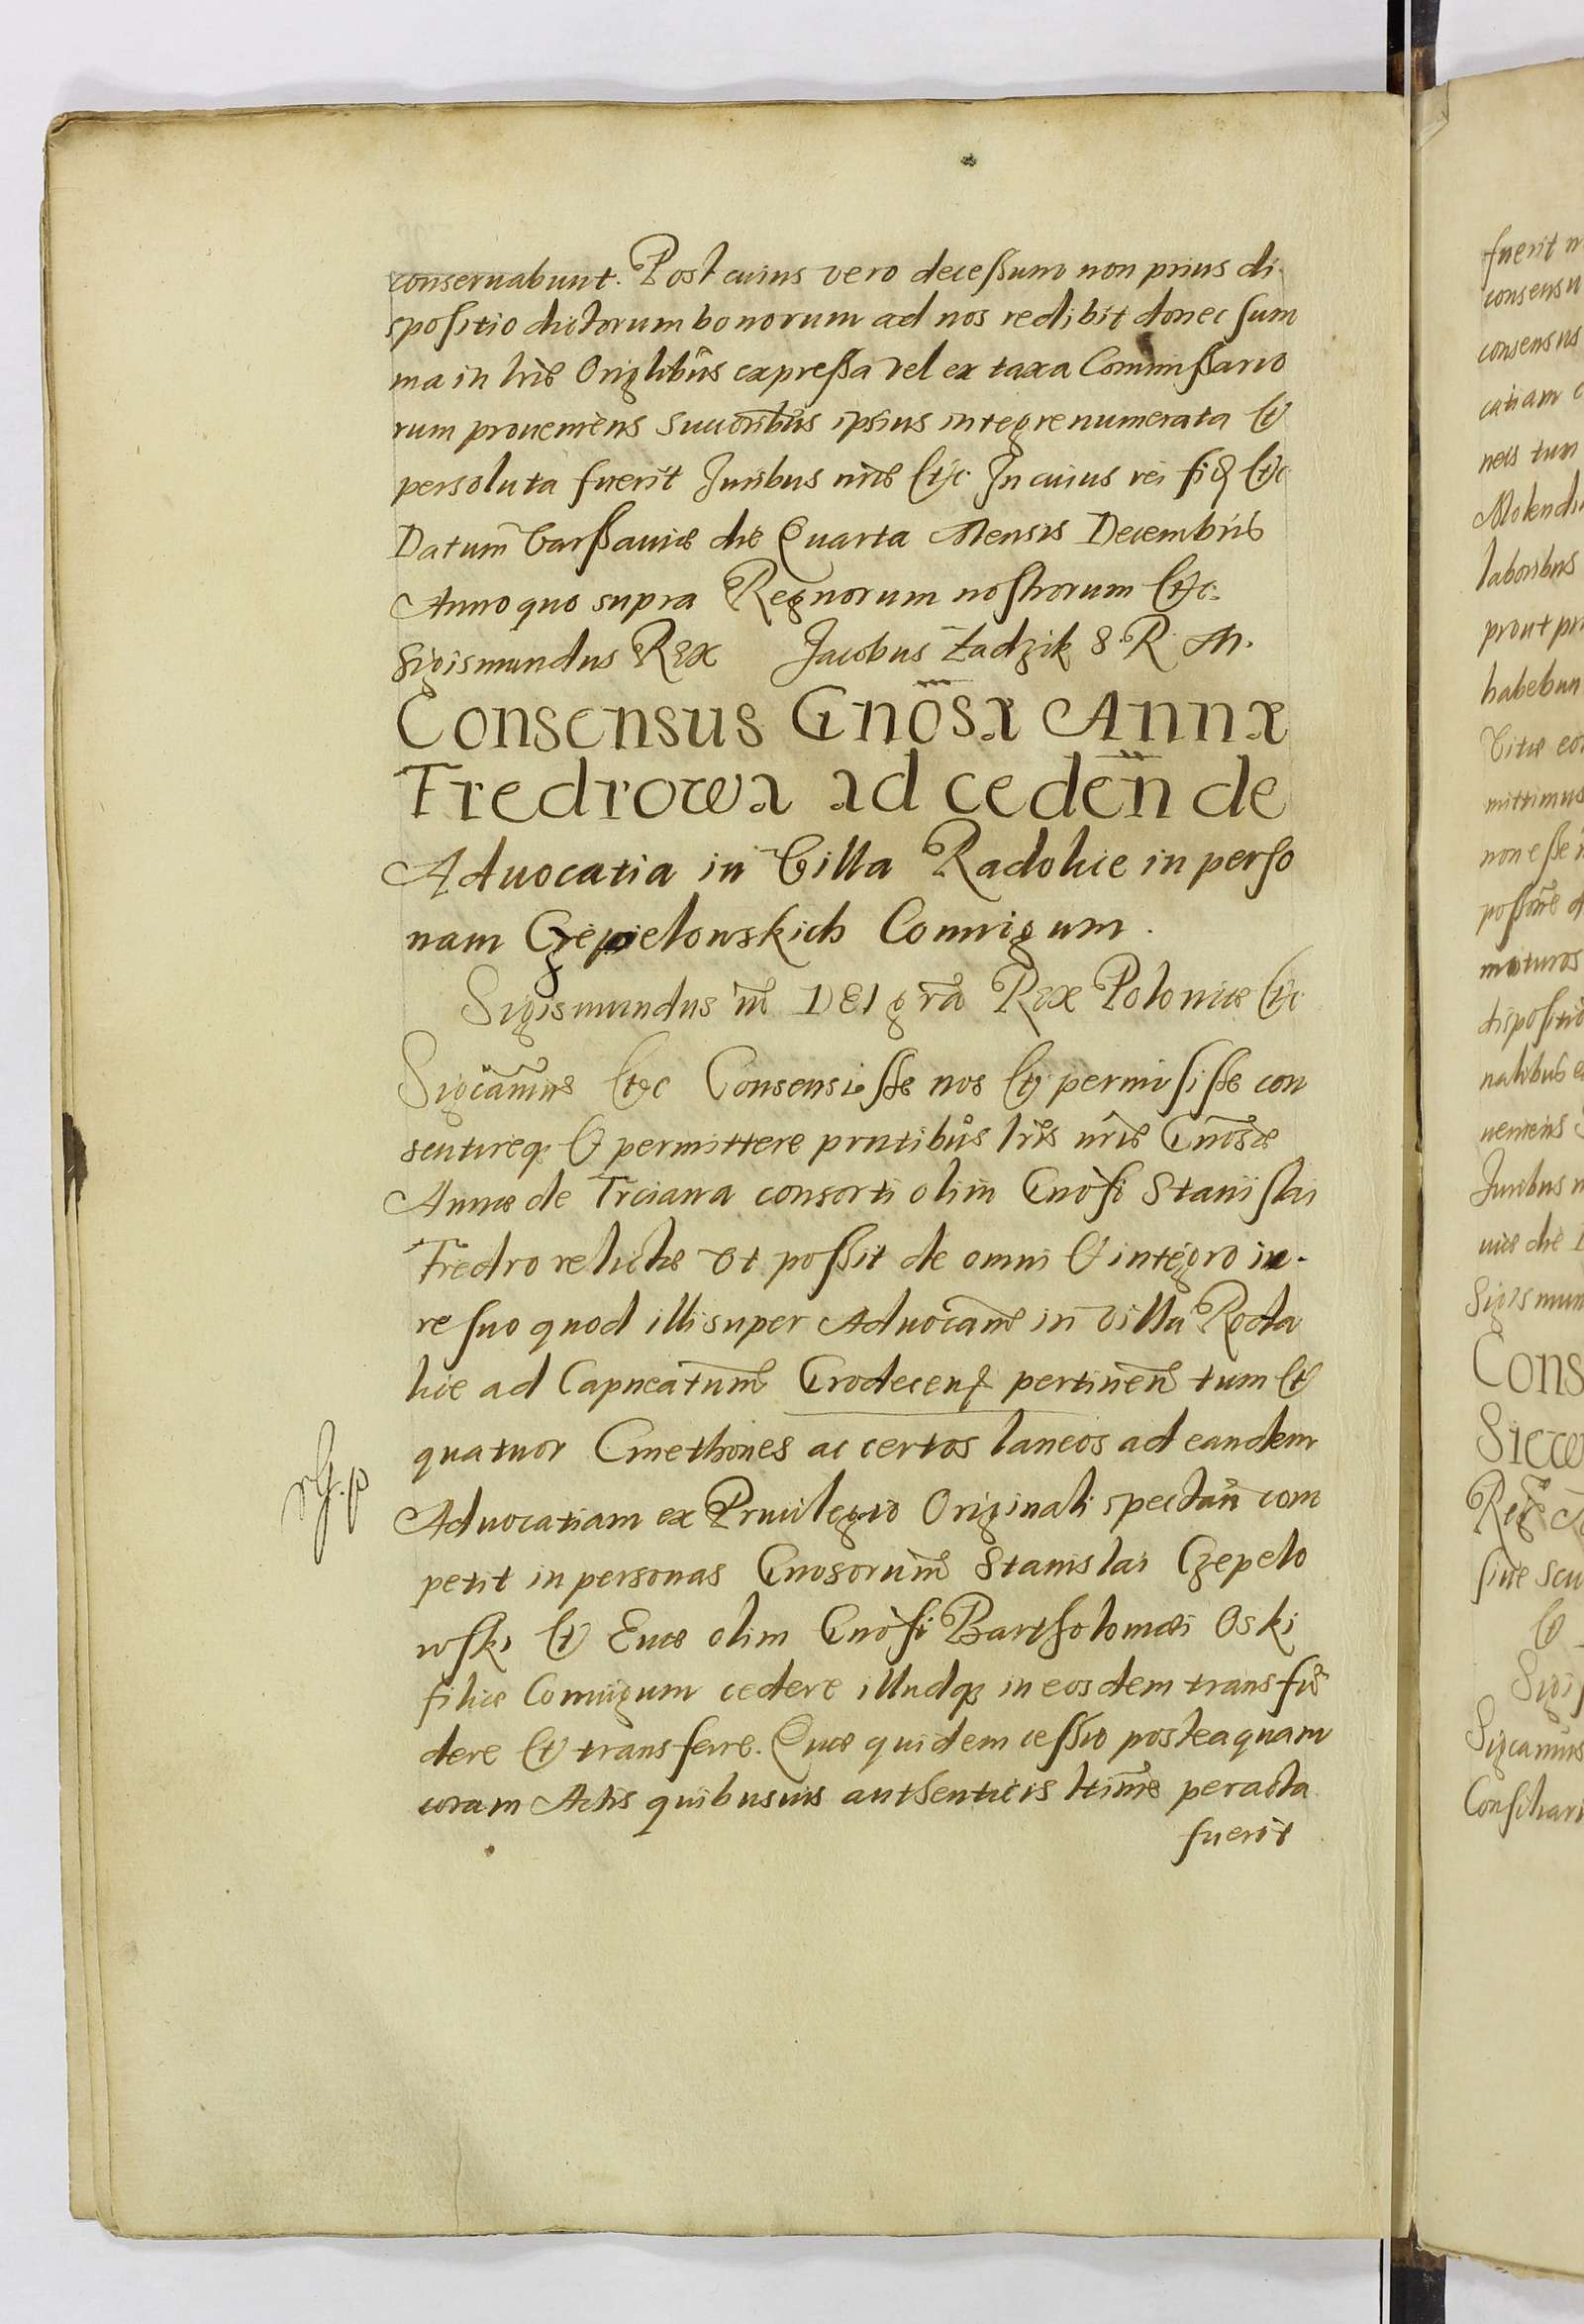 conseruabunt. Post cuius vero decessum non prius di-
spositio dictorum bonorum ad nos redibit donec sum
ma in lris Origlibus expressa vel ex taxa Commissario
rum proueniens succoribus ipsius integre numerata et
persoluta fuerit Juribus nris etc. In cuius rei fid etc
Datum Varssauiæ die Quarta Mensis Decembris
Anno quo supra Regnorum nostrorum etc.
Sigismundus Rex Jacobus Zadzik S. R. M.
Consensus Gnosæ Annæ
Fredrowa ad ceden de
Aduocatia in Villa Radolice in perso
nam Czepielowskich Coniugum.
Sigismundus III DEI gra Rex Poloniæ etc
Sigcamus etc Consensisse nos et permisisse con
sentireq et permittere prntibus lris nris Gnosæ
Annæ de Trciana consorti olim Gnosi Stanislai
Fredro relictæ Vt possit de omni et integro iu-
re suo quod illi super Aduocam in villa Rada
lice ad Capneatum Grodecen pertinen tum et
quatuor Cmethones ac certos laneos ad eandem
Aduocatiam ex Priuilegio Originali spectan com
petit in personas Gnosorum Stanislai Czepelo
wski et Euæ olim Gnosi Bartholomæi Oski
filiæ Coniugum cedere illudq in eosdem transfun
dere et transferre. Quæ quidem cessio posteaquam
coram Actis quibusuis authenticis ltime peracta
fuerit
fuerit
consensu
consensus
catiam
neis tum
Molendi
laboribus
prout pr
habebun
Vitæ
mittimus
non esse
maturos
dispositio
nalibus
ueniens
Juribus
uiæ die
Sigismun
Cons
siue scu
Sigcamus
Consiliari